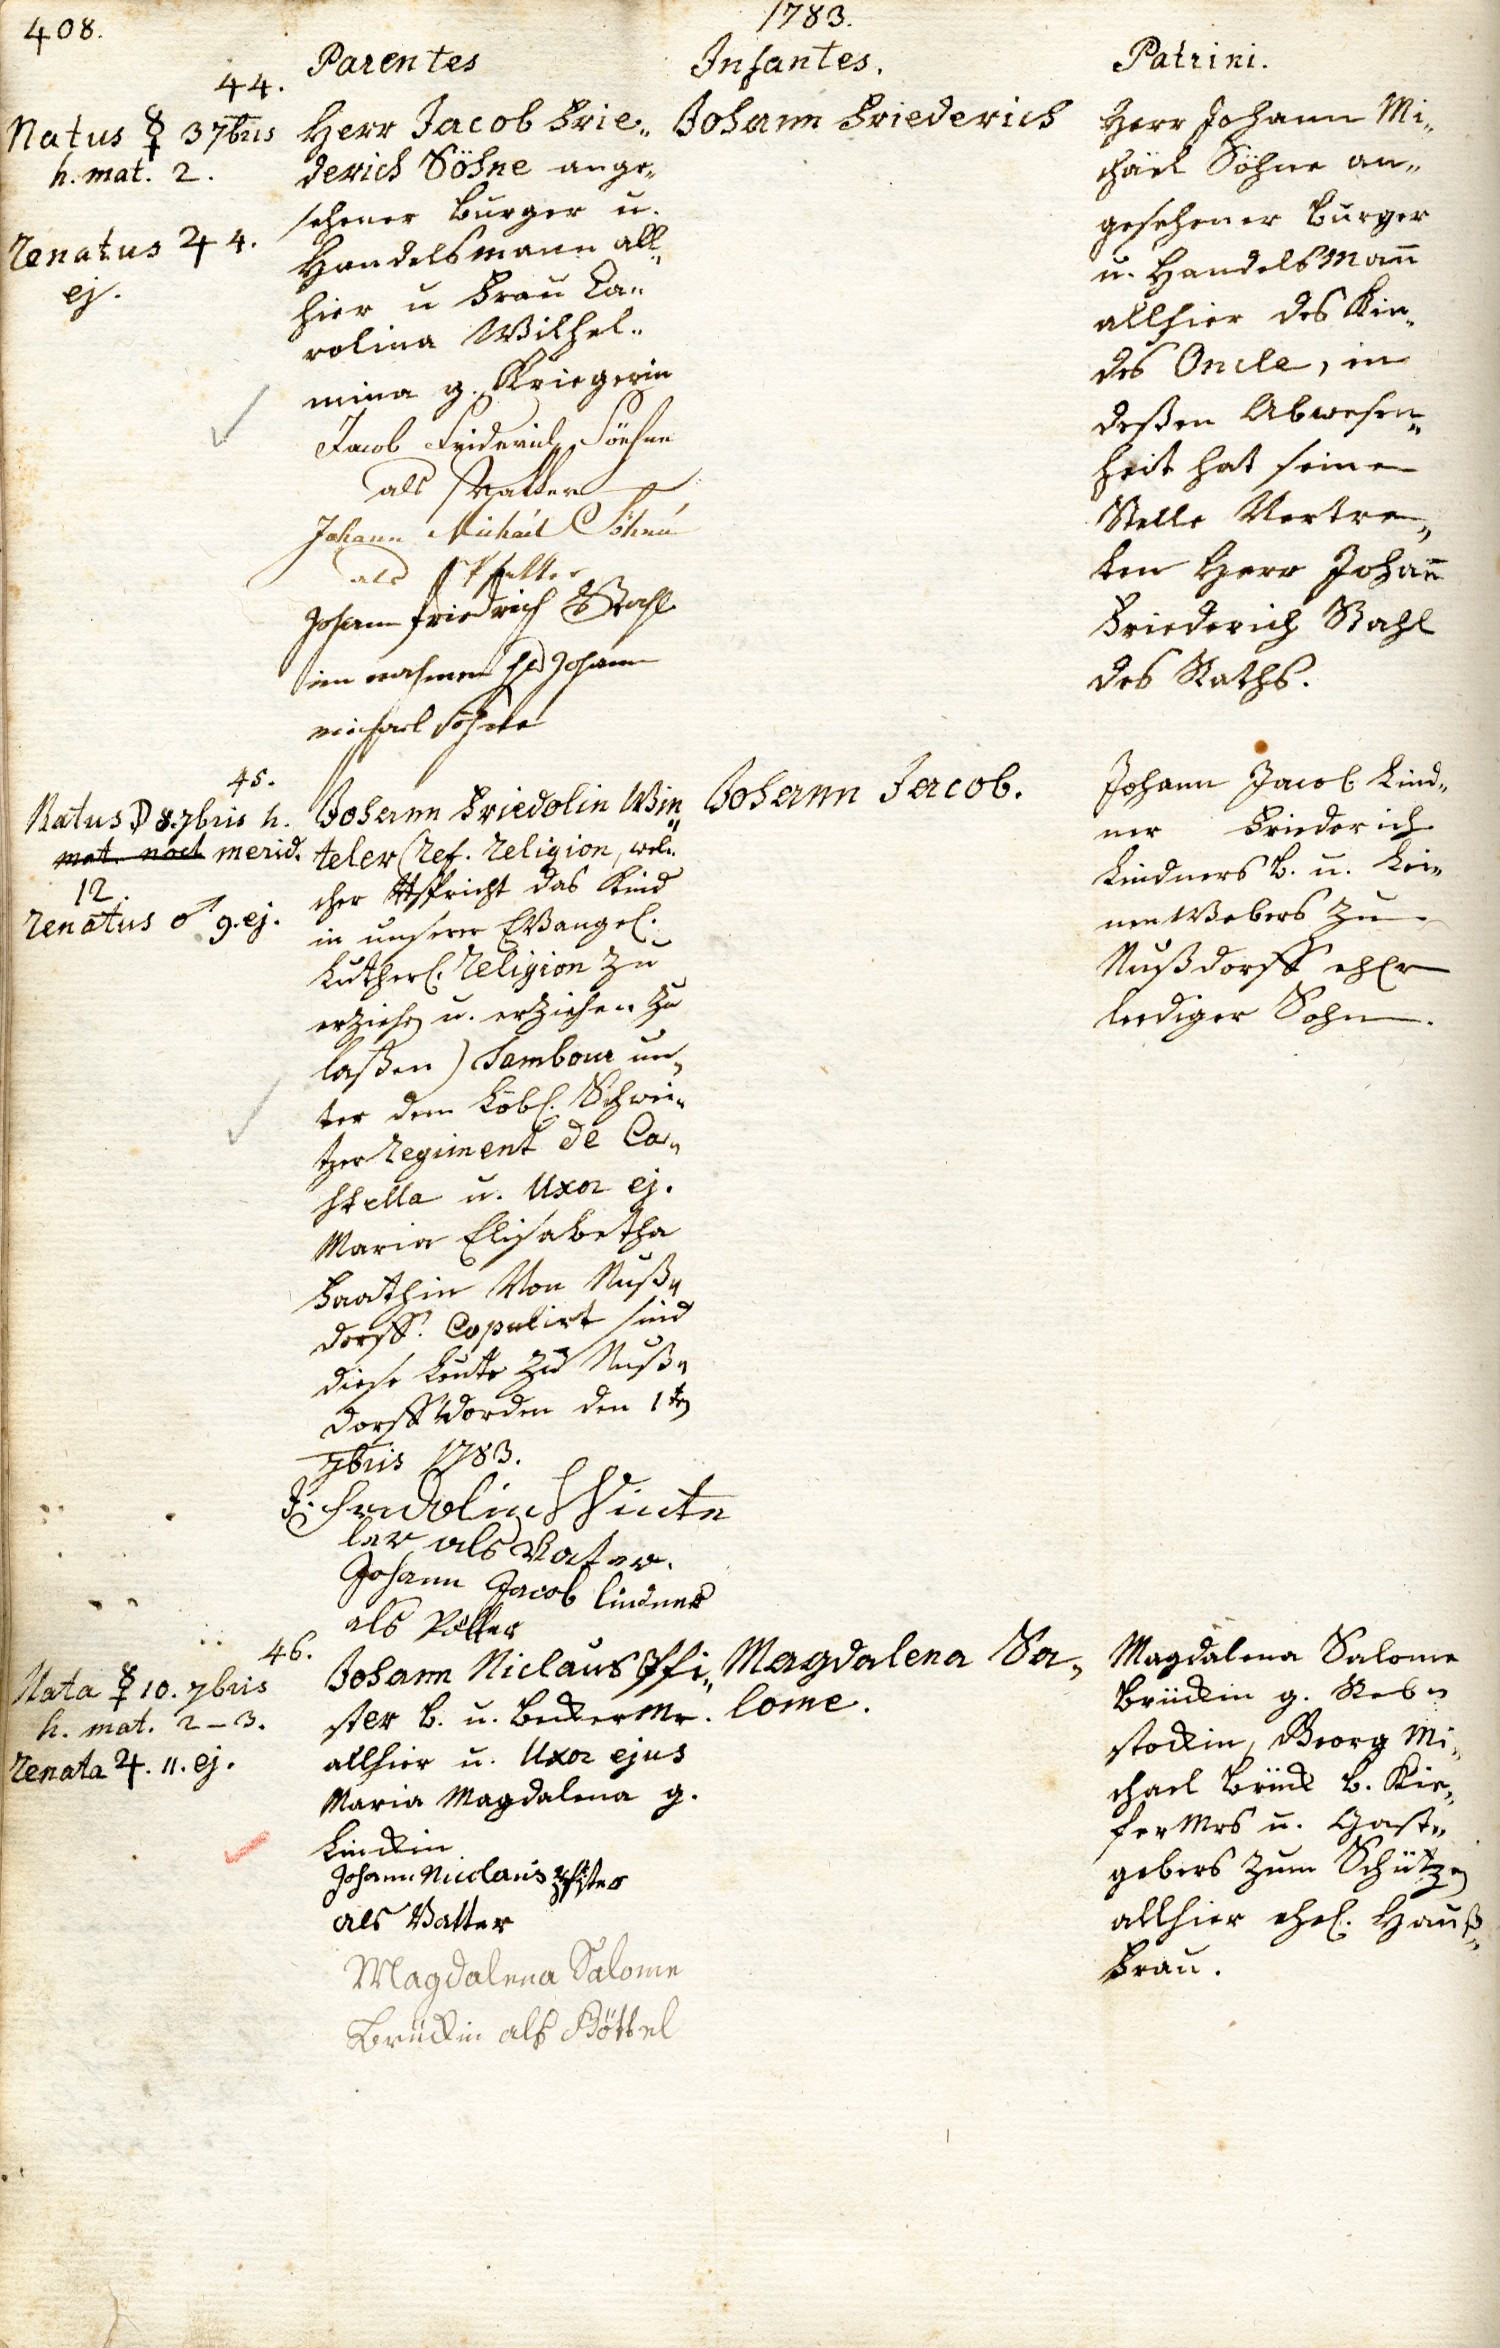 408.
1783.
Parentes
Infantes.
Patrini.
44.
Natus ☿ 3 7bris
h. mat. 2.
renatus ♃ 4.
ej.
Herr Jacob Frie„
derich Söhne ange„
sehener Burger u.
Handelsmann all„
hier u Frau Ca„
rolina Wilhel„
mina g. Kriegerin
Jacob Friderich Söehne
als Vatter
Johann Michäel Söhne
als Pfetter
Johann friedrich Stahl
im nahmen Hr Johann
michael Söhne
Johann Friederich
Herr Johann Mi„
chäel Söhne an„
gesehener Burger
u. Handelsmañ
allhier des Kin„
des Oncle, in
deßen Abwesen„
heit hat seine
Stelle Vertre„
ten Herr Johañ
Friederich Stahl
des Raths.
45.
Natus ☽ 8. 7bris h.
mat. noct merid.
12.
renatus ♂ 9. ej.
Johann Friedolin Win„
teler (ref. religion, wel„
cher verspricht das Kind
in unserer Evangel.
Lutherl. religion zu
erziehen u. erziehen zu
laßen) Tambour un„
ter dem Löbl. Schwei„
tzer regiment de Ca„
stella u. Uxor ej.
Maria Elisabetha
Faathin Von Nuß„
dorff. Copulirt sind
diese Leute zu Nuß„
dorff worden den 1ten
7bris 1783.
J. fridolin Winte
ler als Vater.
Johann Jacob lindner
als Pötter
Johann Jacob.
Johann Jacob Lind„
ner Friederich
Lindners B. u. Lei„
nenwebers zu
Nußdorff ehl
lediger Sohn.
46.
Nata ☿ 10. 7bris
h. mat. 2–3.
renata ♃. 11. ej.
Johann Niclaus Pfi„
ster B. u. Beckermr.
allhier u. Uxor ejus
Maria Magdalena g.
Linckin
Johann Niclaus Pfister
als Vatter
Magdalena Salome
Brückin als Göttel
Magdalena Sa„
lome.
Magdalena Salome
Brückin g. Reb„
stockin, Georg Mi„
chael Brück B. Kie„
fermrs u. Gast„
gebers zum Schützen
allhier ehel. Hauß„
Frau.